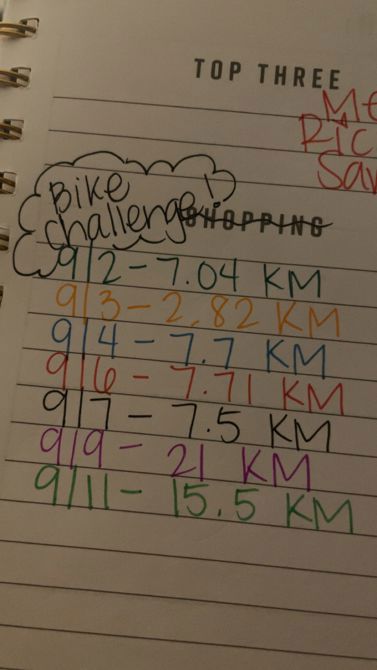 TOP THREE
Bike
challenge!
SHOPPING
9/2 - 7.04 KM
9/3 - 2.82 KM
9/4 - 7.7 KM
9/6 - 7.71 KM
9/7 - 7.5 KM
9/9 - 21 KM
9/11 - 15.5 KM